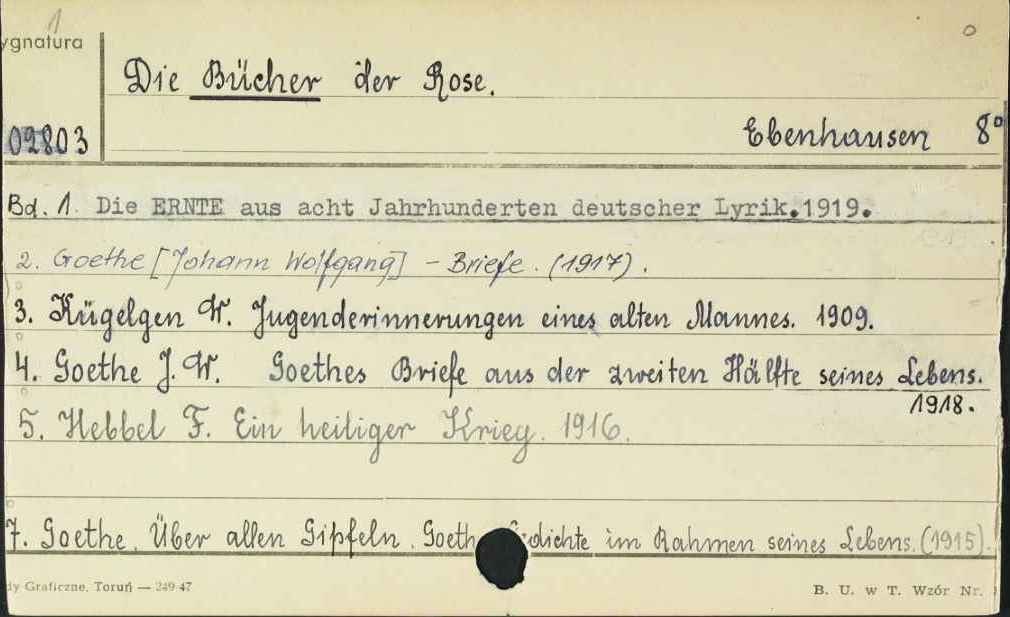 1
ygnatura
Die Bücher der Rose.
02803
Ebenhausen 8°
Bd. 1. Die ERNTE aus acht Jahrhunderten deutscher Lyrik.1919.
2. Goethe [Johann Wolfgang] - Briefe. (1917).
3. Kügelgen W. Jugenderinnerungen eines alten Mannes. 1909.
4. Goethe J. W. Goethes Briefe aus der zweiten Hälfte seines Lebens.
1918.
5. Hebbel F. Ein heiliger Krieg. 1916.
7. Goethe. Über allen Gipfeln. Goeth dichte im Rahmen seines Lebens. (1915).
dy Graficzne, Toruń — 249-47
B. U. w T. Wzór Nr.